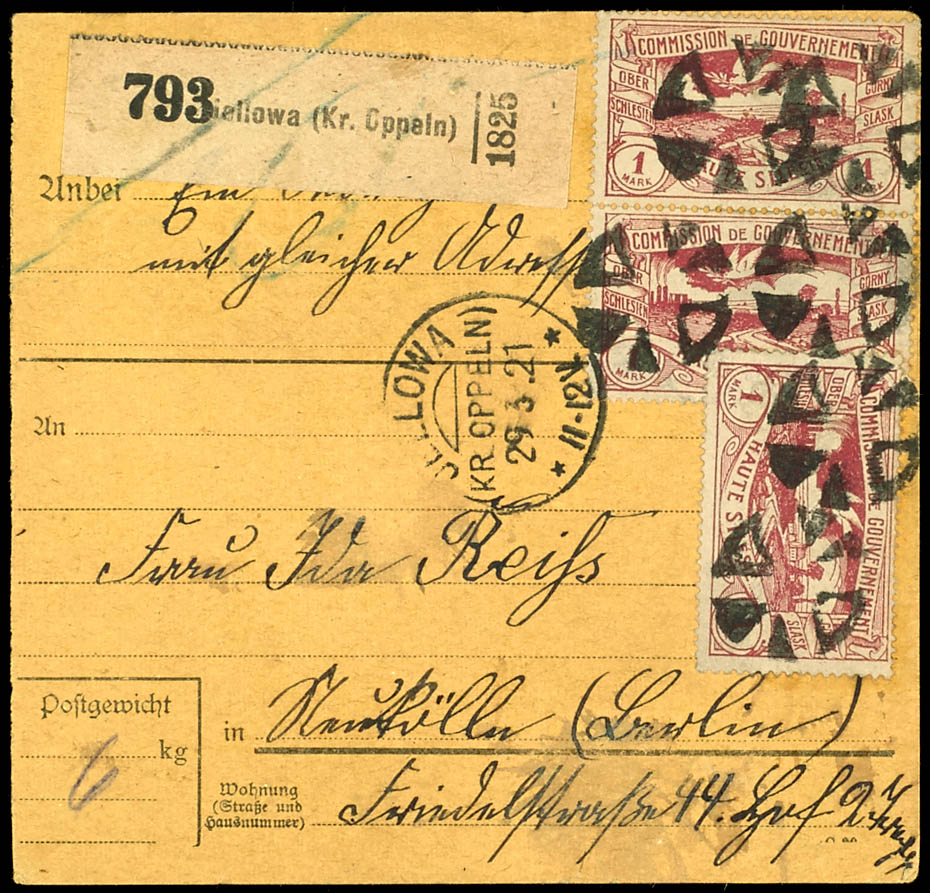 793 iellowa (Kr. Oppeln) 1825
Anbei Ein
mit gleicher Adresse
An
Frau Ida Reiss
in Neukölln (Berlin)
Postgewicht
6 kg
Wohnung
(Straße und
Hausnummer)
Friedelstraße 44. Hof 2
LLOWA
(KR. OPPELN)
29.3.21
* 11-12V *
COMMISSION DE GOUVERNEMENT
OBER
SCHLESIEN
GORNY
SLASK
1 MARK
HAUTE S
1 MARK
COMMISSION DE GOUVERNEMENT
OBER
SCHLESIEN
GORNY
SLASK
MARK
COMMISSION DE GOUVERNEMENT
OBER
SLASK
1 MARK
HAUTE S